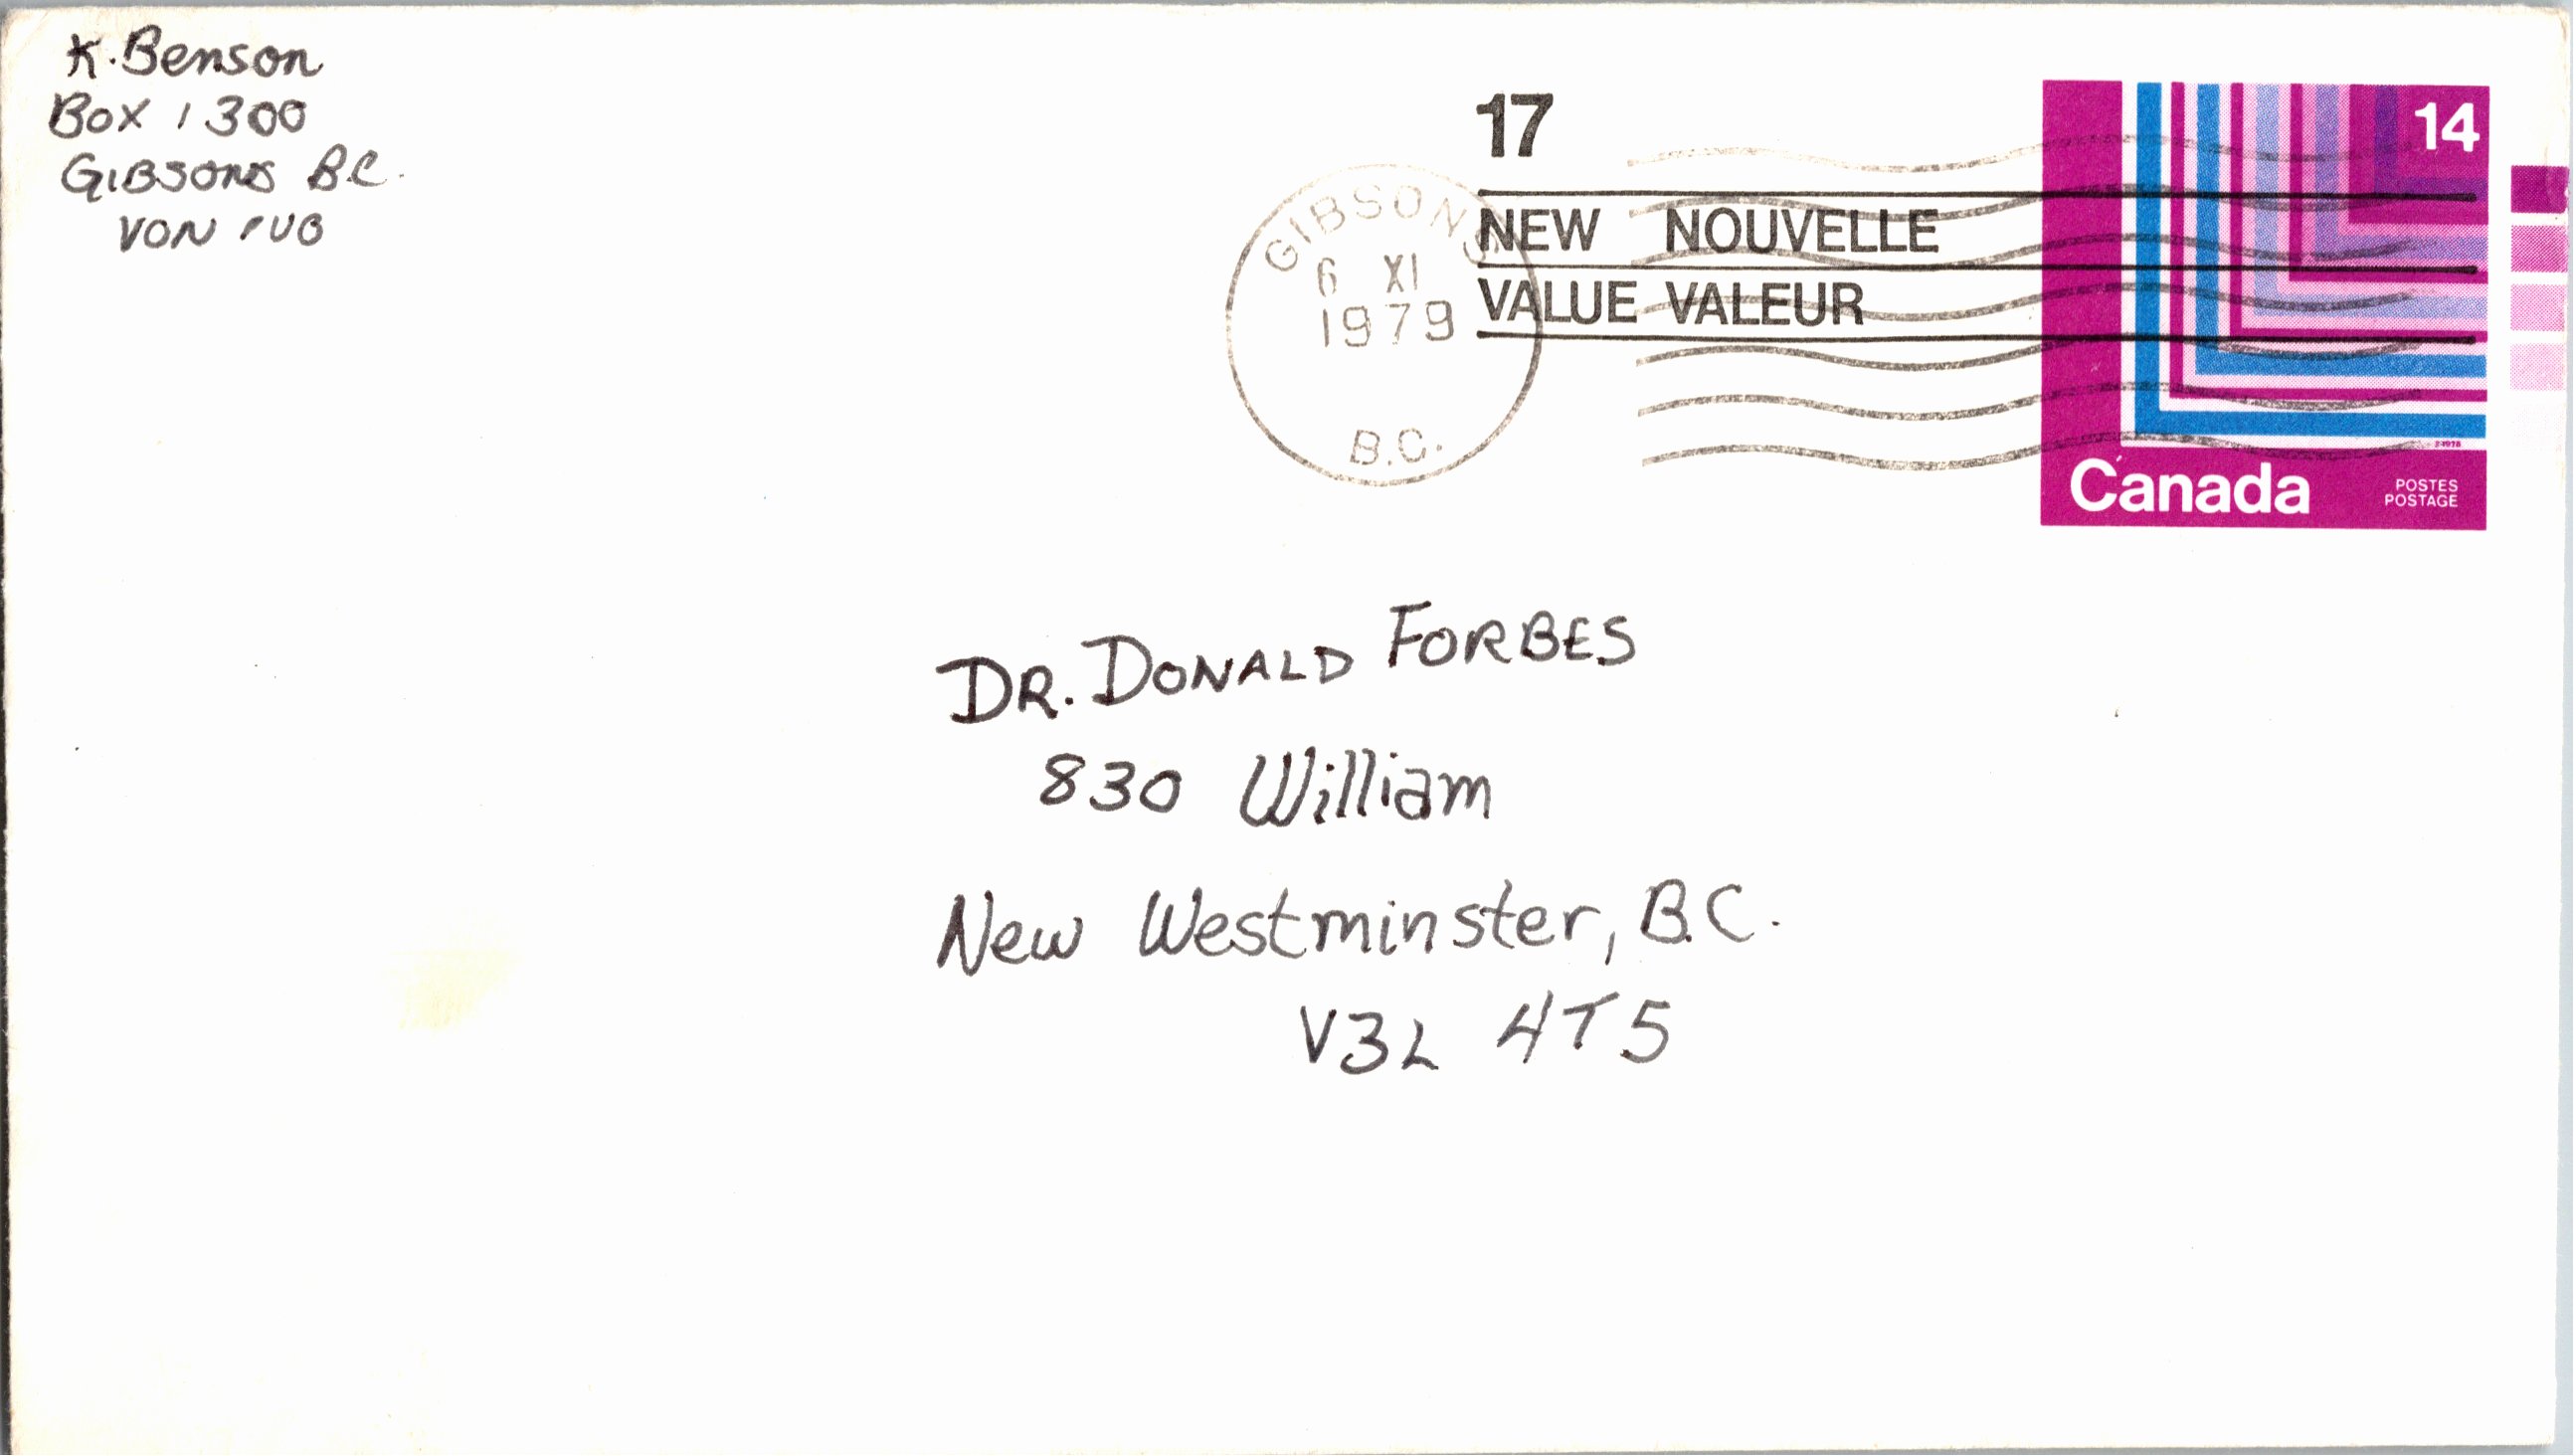 K. Benson
Box 1300
GIBSONS B.C.
VON 1V0
17
NEW NOUVELLE
VALUE VALEUR
GIBSONS
6 XI
1979
B.C.
14
1978
Canada
POSTES
POSTAGE
DR. DONALD FORBES
830 William
New Westminster, B.C.
V3L 4T5